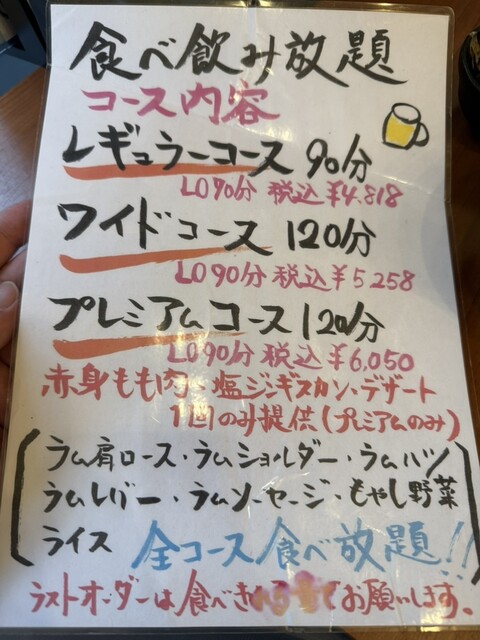 食べ飲み放題
コース内容
レギュラーコース 90分
LO90分 税込¥4.818
ワイドコース 120分
LO90分 税込¥5258
プレミアムコース 120分
LO90分 税込¥6,050
赤身もも肉・塩ジンギスカン・デザート
1回のみ提供(プレミアムのみ)
(ラム肩ロース・ラムショルダー・ラムハツ
ラムレバー・ラムソーセージ・もやし野菜
ライス 全コース食べ放題!!)
ラストオーダーは食べき てお願いします。